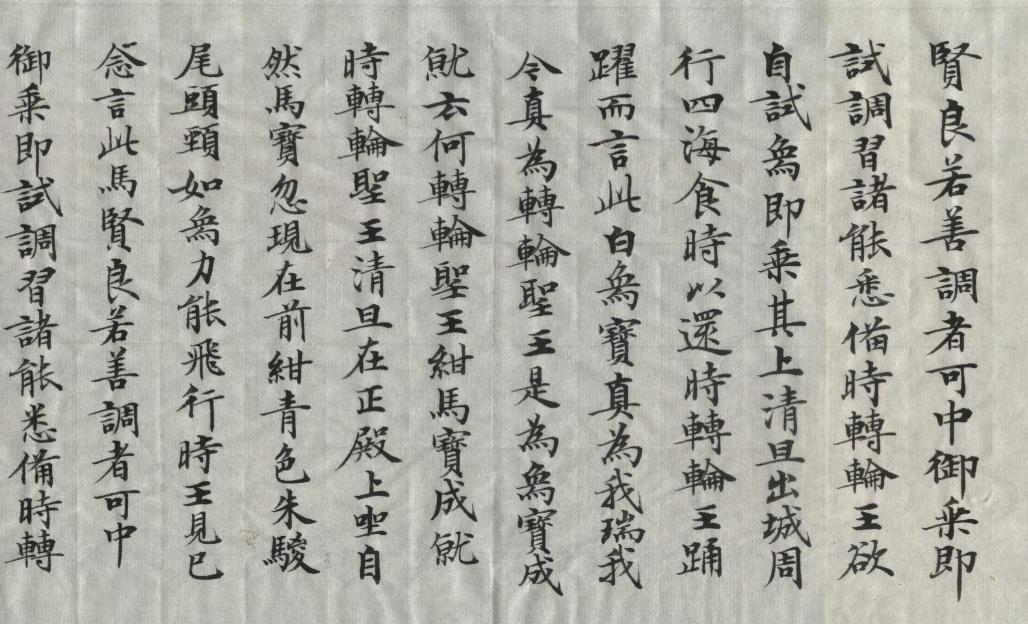 賢良若善調者可中御乗即
試調習諸能悉俻時轉輪王欲
自試為即乗其上清旦出城周
行四海食時以還時轉輪王踊
躍而言此白為寶真為我瑞我
令真為轉輪聖王是為為寶成
就云何轉輪聖王紺馬寶成就
時轉輪聖王清旦在正殿上坐自
然馬寶忽現在前紺青色朱駿
尾頭頸如為力能飛行時王見已
念言此馬賢良若善調者可中
御乗即試調習諸能悉俻時轉